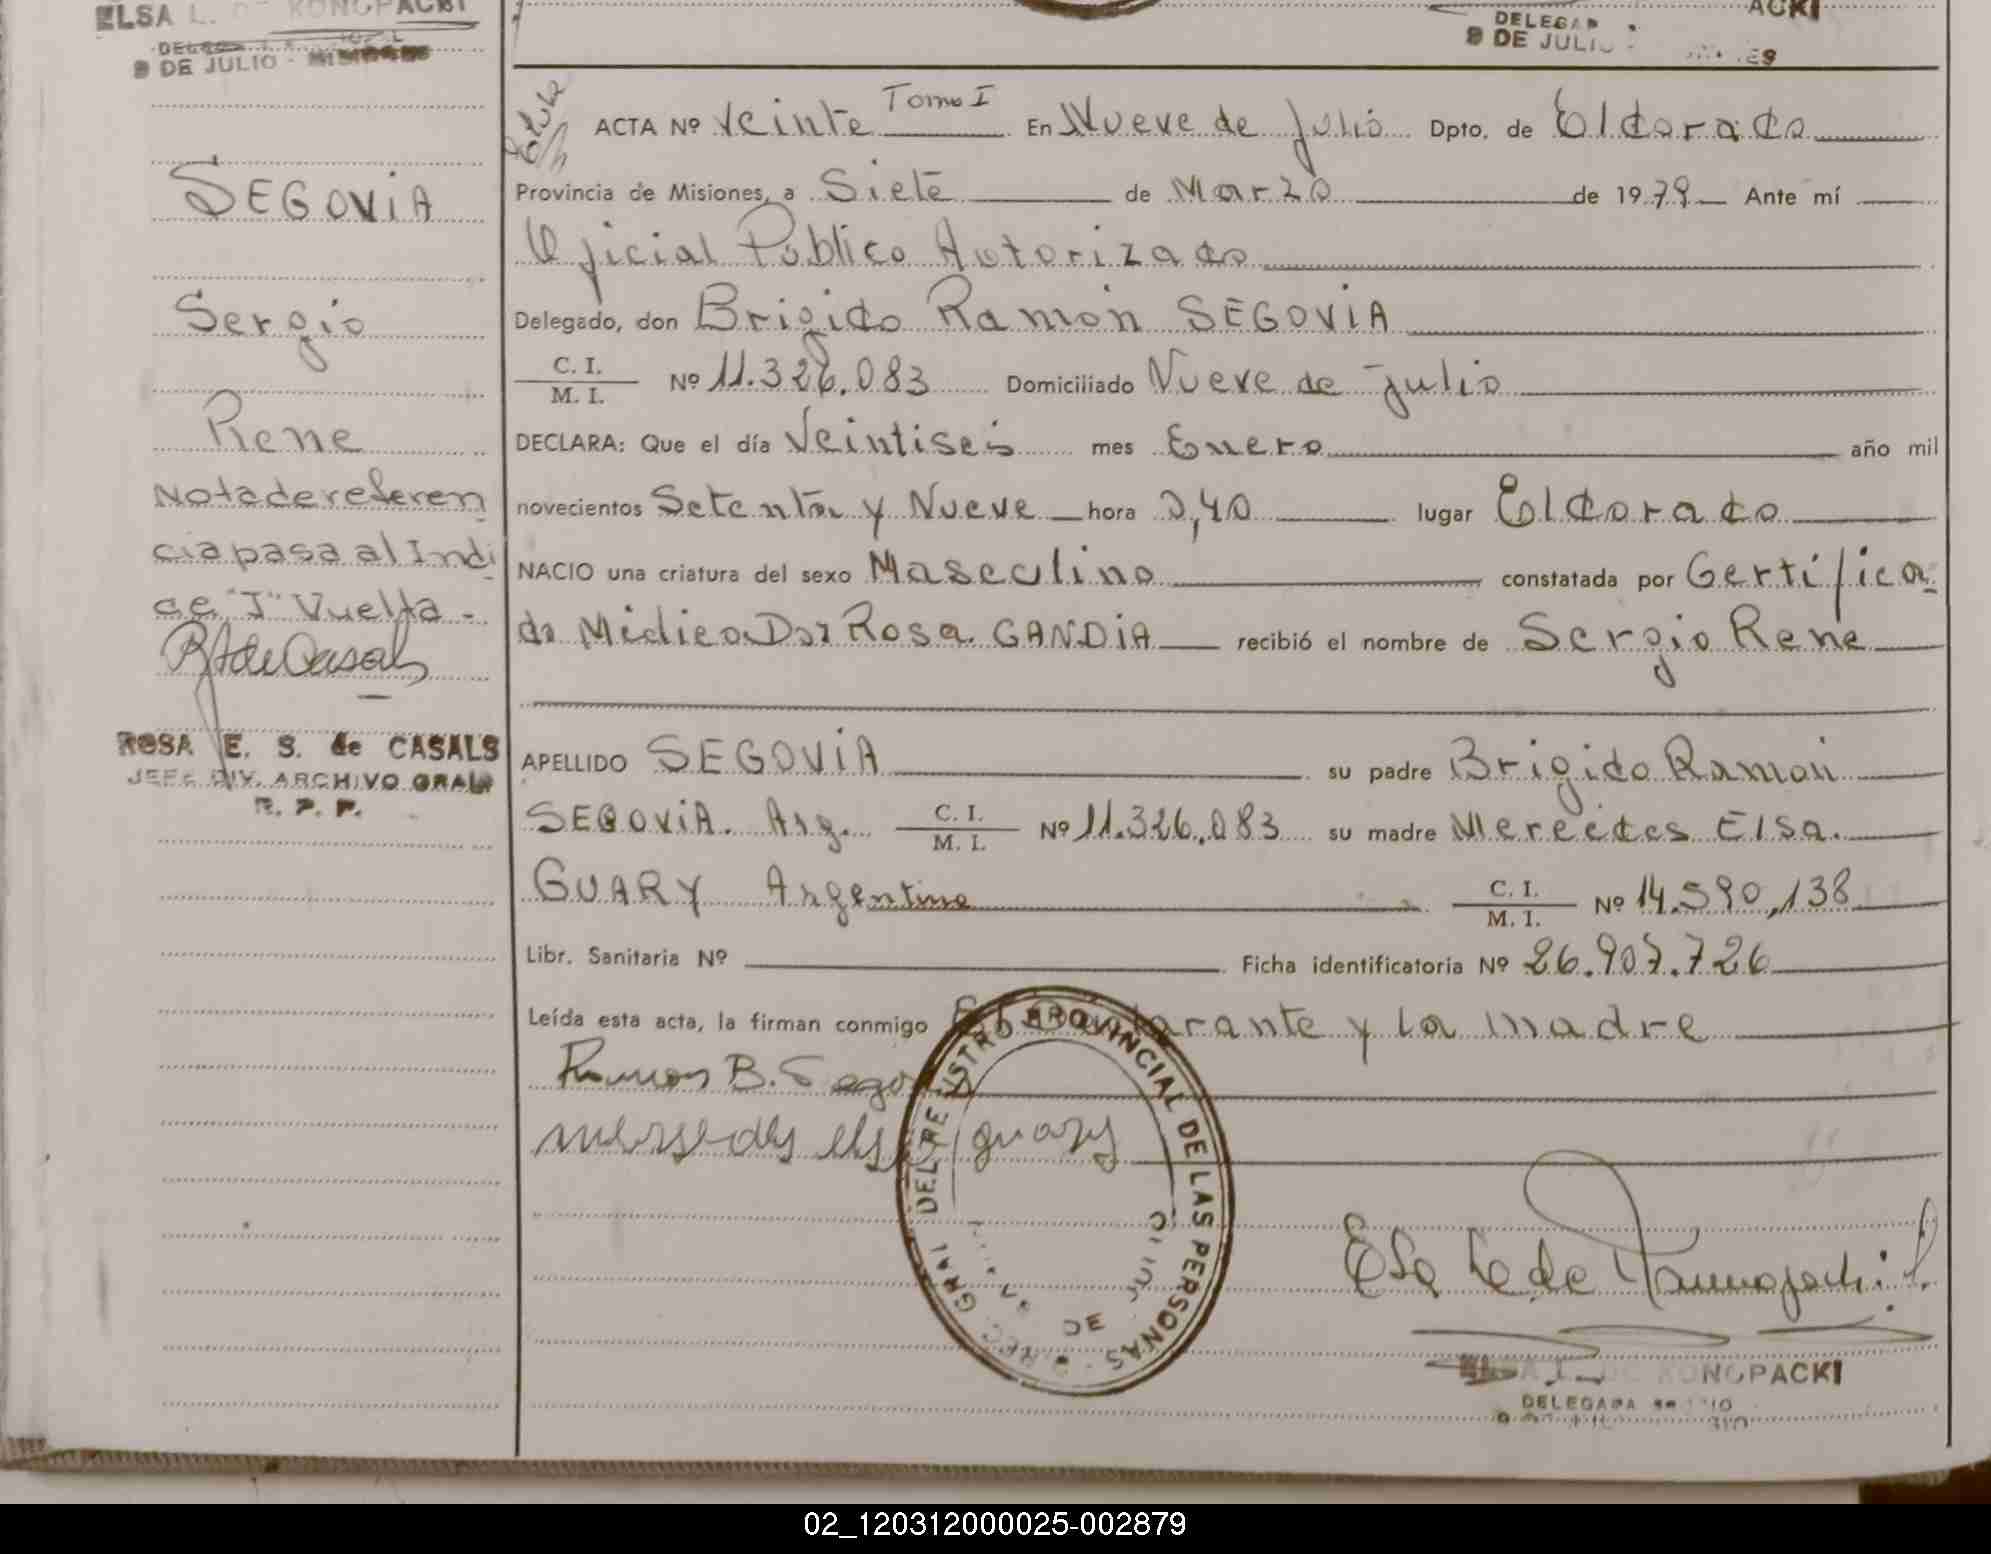 ELSA L. DE KONOPACKI
9 DE JULIO - MISIONES
SEGOVIA
Sergio
Rene
Nota de referen
cia pasa al Indi
ce "I" Vuelta -
R de Casals
ROSA E. S. de CASALS
JEFE DIV. ARCHIVO GRAL
R. P. P.
ACKI
DELEGAD
9 DE JULIO -
ES
ACTA Nº Veinte Tomo I En Nueve de Julio Dpto. de Eldorado
Provincia de Misiones, a Siete de Marzo de 1979 Ante mí
Oficial Público Autorizado
Delegado, don Brigido Ramón SEGOVIA
C. I.
M. I. Nº 11.326.083 Domiciliado Nueve de Julio
DECLARA: Que el día Veintiseis mes Enero año mil
novecientos Setenta y Nueve hora 2,40 lugar Eldorado
NACIO una criatura del sexo Masculino constatada por Certifica
do Médico Dor Rosa GANDIA recibió el nombre de Sergio Rene
APELLIDO SEGOVIA su padre Brigido Ramón
SEGOVIA. Arg. C. I. M. I. Nº 11.326.083 su madre Mercedes Elsa
GUARY Argentina C. I. M. I. Nº 14.590.138
Libr. Sanitaria Nº Ficha identificatoria Nº 26.907.726
Leída esta acta, la firman conmigo El Declarante y la madre
Ramon B. Segovia
mersedes elsa guary
DIREC. GRAL DEL REGISTRO PROVINCIAL DE LAS PERSONAS
Elsa L de Konopacki
ELSA L. DE KONOPACKI
DELEGADA
02_120312000025-002879